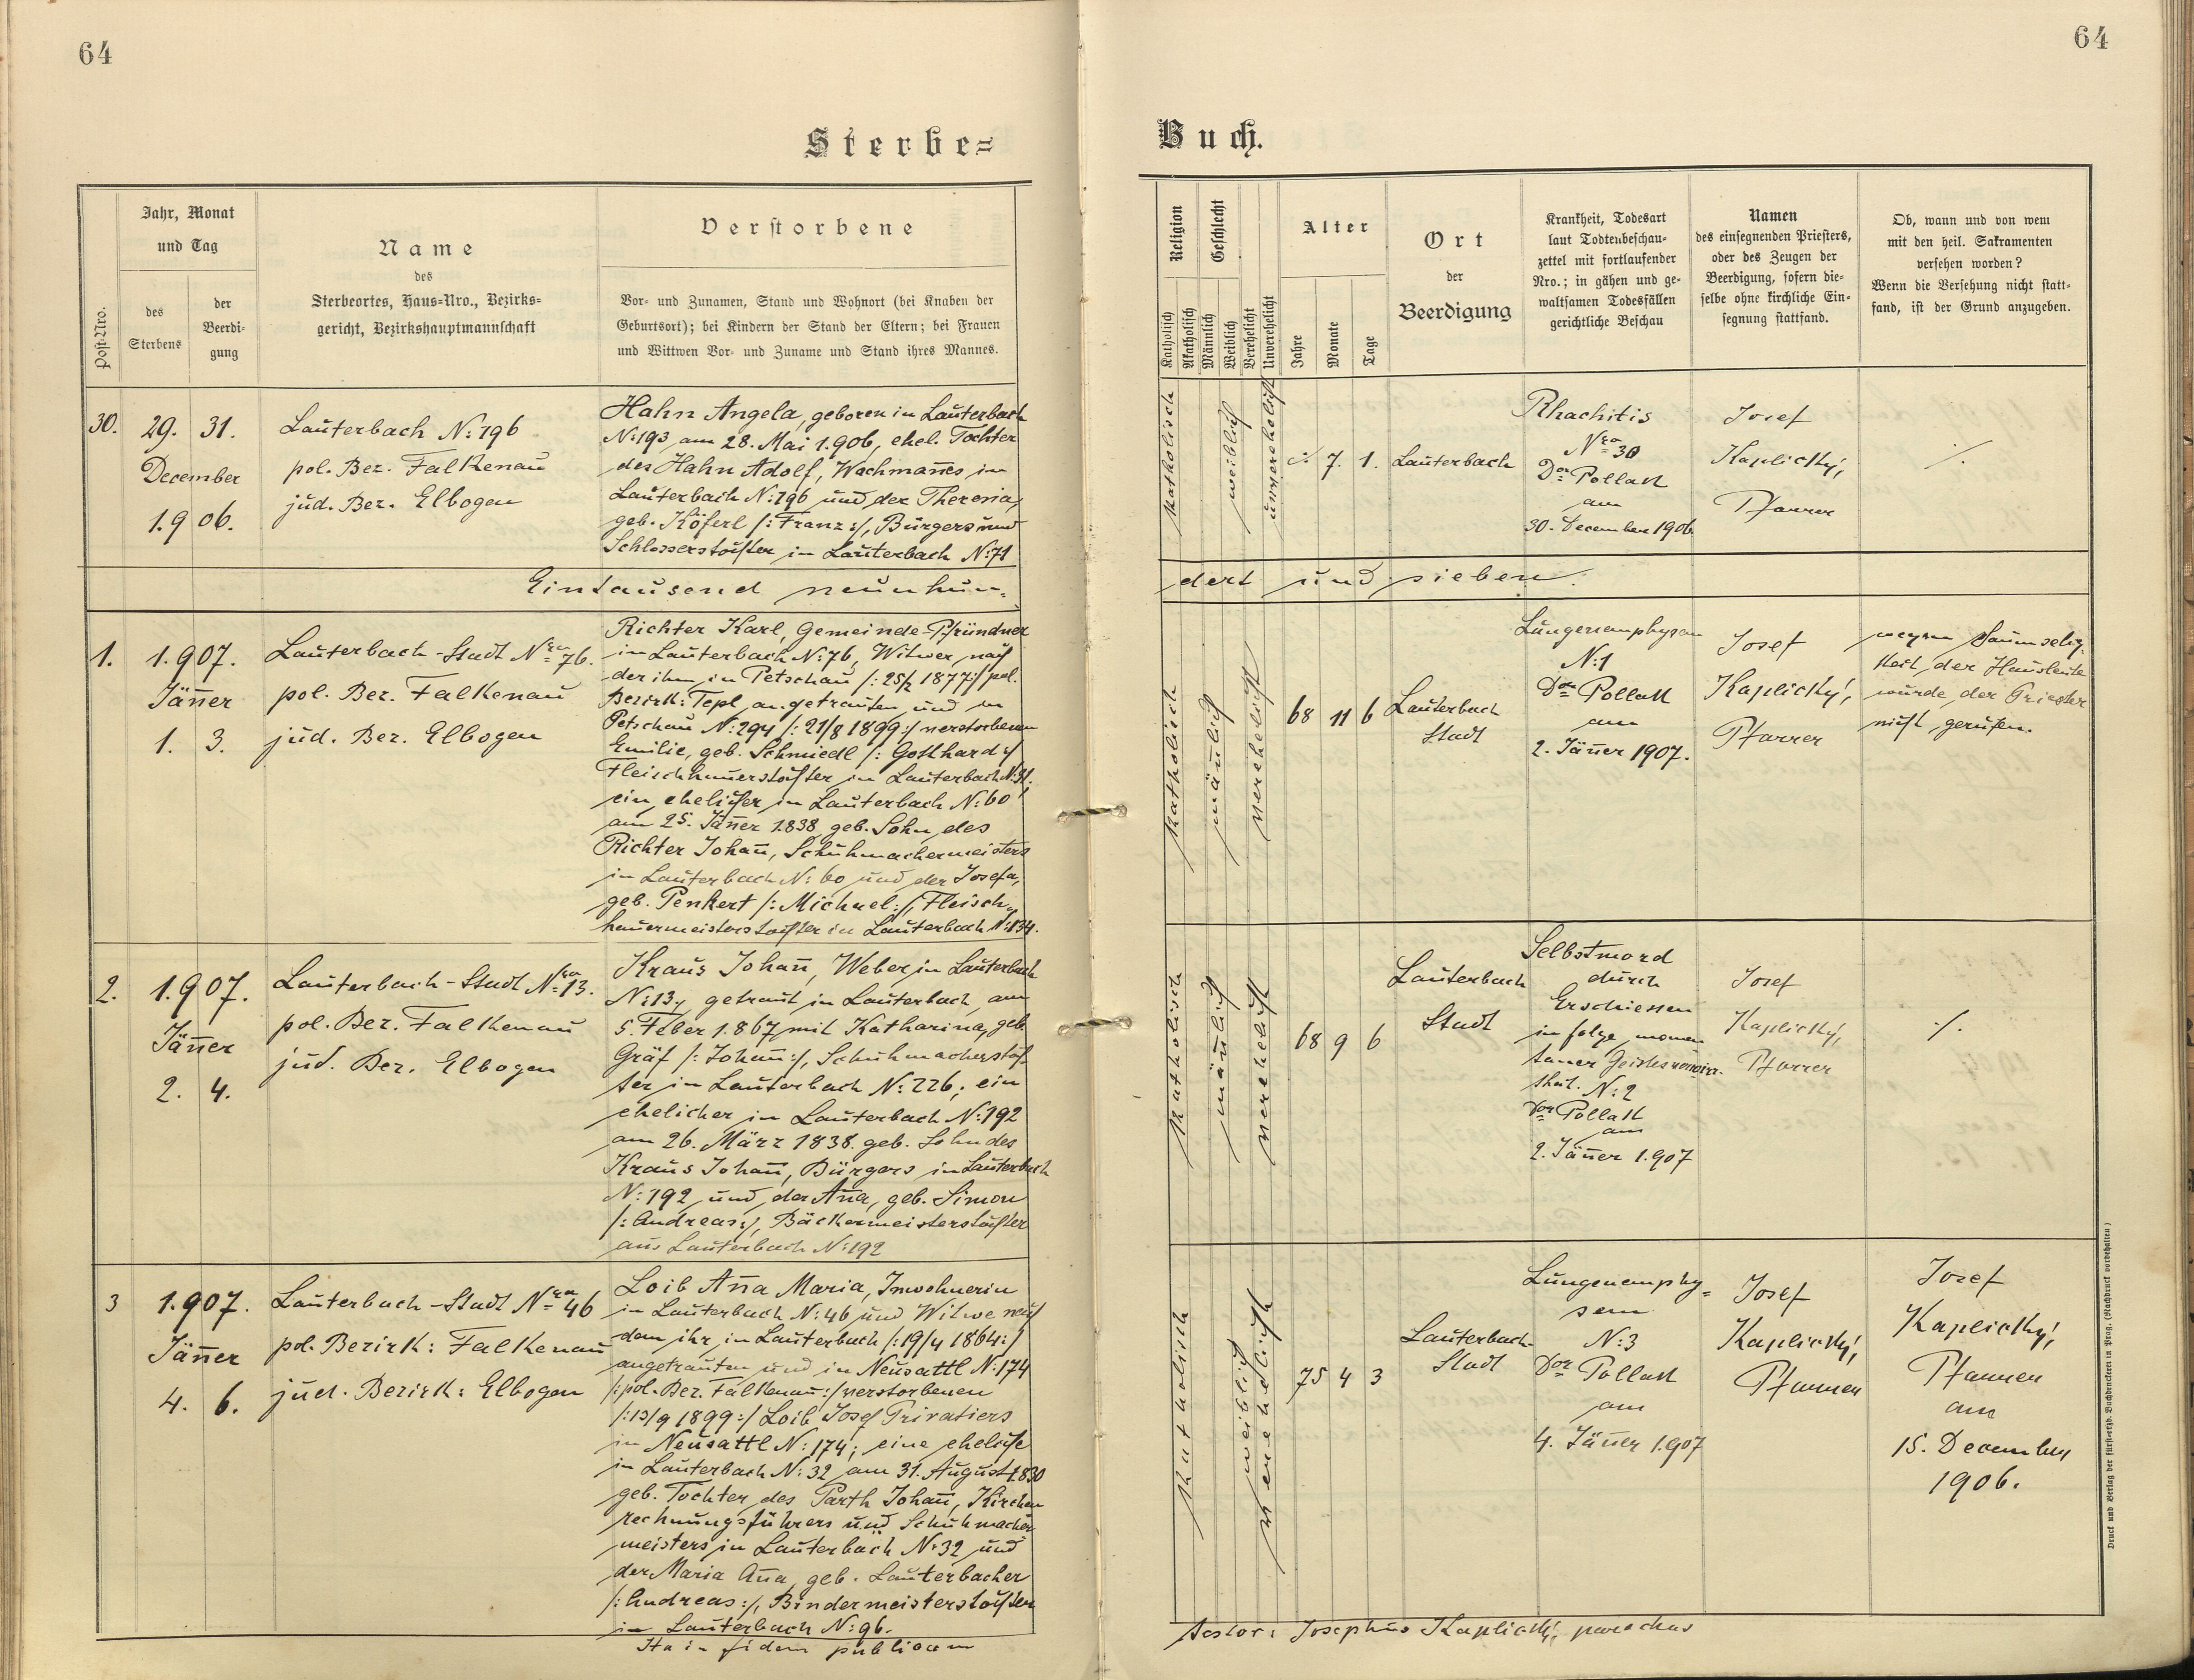 64
64
Sterbe=
Buch.
Post-Nro.
Jahr, Monat
und Tag
des
Sterbens
der
Beerdi-
gung
Name
des
Sterbeortes, Haus-Nro., Bezirks-
gericht, Bezirkshauptmannschaft
Verstorbene
Vor- und Zunamen, Stand und Wohnort (bei Knaben der
Geburtsort); bei Kindern der Stand der Eltern; bei Frauen
und Wittwen Vor- und Zuname und Stand ihres Mannes.
Religion
Katholisch
Akatholisch
Geschlecht
Männlich
Weiblich
Verehelicht
Unverehelicht
Alter
Jahre
Monate
Tage
Ort
der
Beerdigung
Krankheit, Todesart
laut Todtenbeschau-
zettel mit fortlaufender
Nro.; in gähen und ge-
waltsamen Todesfällen
gerichtliche Beschau
Namen
des einsegnenden Priesters,
oder des Zeugen der
Beerdigung, sofern die-
selbe ohne kirchliche Ein-
segnung stattfand.
Ob, wann und von wem
mit den heil. Sakramenten
versehen worden?
Wenn die Versehung nicht statt-
fand, ist der Grund anzugeben.
30.
29. 31.
December
1.906.
Lauterbach N: 196
pol. Bez. Falkenau
jud. Bez. Elbogen
Hahn Angela, geboren in Lauterbach
N:193 am 28. Mai 1.906, ehel. Tochter
des Hahn Adolf, Wachmanes in
Lauterbach N:196 und der Theresia,
geb. Köferl /:Franz:/, Bürgers und
Schlosserstochter in Lauterbach N:71
katholisch
weiblich
unverehelicht
./. 7. 1.
Lauterbach
Rhachitis
Nro 30
Dor Pollak
am
30. December 1906
Josef
Kaplický,
Pfarrer
./.
Eintausend neunhun-
dert und sieben.
1.
1.907.
Jäner
1. 3.
Lauterbach-Stadt Nro 76.
pol. Bez. Falkenau
jud. Bez. Elbogen
Richter Karl, Gemeinde-Pfründner
in Lauterbach N:76, Witwer nach
der ihm in Petschau /:25/2 1877:/ pol.
Bezirk: Tepl angetrauten und in
Petschau N:294 /:21/8 1899:/ verstorbenen
Emilie, geb. Schmiedl /:Gotthard:/
Fleischhauerstochter in Lauterbach N:31;
ein ehelicher in Lauterbach N:60
am 25. Jäner 1838 geb. Sohn des
Richter Johan, Schuhmachermeisters
in Lauterbach N:60 und der Josefa,
geb. Penkert /:Michael:/, Fleisch-
hauermeisterstochter in Lauterbach N:134.
katholisch
mänlich
verehelicht
68 11 6
Lauterbach
Stadt
Lungenemphysem
N:1
Dor Pollak
am
2. Jäner 1907.
Josef
Kaplický,
Pfarrer
wegen Saumselig-
keit der Hausleute
wurde der Priester
nicht gerufen.
2.
1.907.
Jäner
2. 4.
Lauterbach-Stadt Nro 13.
pol. Bez. Falkenau
jud. Bez. Elbogen
Kraus Johan, Weber in Lauterbach
N:13, getraut in Lauterbach am
5. Feber 1.867 mit Katharina, geb.
Gräf /:Johan:/, Schuhmacherstoch-
ter in Lauterbach N:226; ein
ehelicher in Lauterbach N:192
am 26. März 1838 geb. Sohn des
Kraus Johan, Bürgers in Lauterbach
N:192 und der Ana, geb. Simon
/:Andreas:/, Bäckermeisterstochter
aus Lauterbach N:192
katholisch
mänlich
verehelicht
68 9 6
Lauterbach
Stadt
Selbstmord
durch
Erschiessen
in folge momen
taner
N:2
Dor Pollak
am
2. Jäner 1.907
Josef
Kaplický,
Pfarrer
./.
3
1.907.
Jäner
4. 6.
Lauterbach-Stadt Nro 46
pol. Bezirk: Falkenau
jud. Bezirk: Elbogen
Loib Ana Maria, Inwohnerin
in Lauterbach N:46 und Witwe nach
dem ihr in Lauterbach /:19/4 1864:/
angetrauten und in Neusattl N:174
/:pol. Bez. Falkenau:/ verstorbenen
/:13/9 1899:/ Loib Josef Privatiers
in Neusattl N:174; eine eheliche
in Lauterbach N:32 am 31. August 1.830
geb. Tochter des Parth Johan, Kirchen
rechnungsführers und Schuhmacher
meisters in Lauterbach N:32 und
der Maria Ana geb. Lauterbacher
/:Andreas:/, Bindermeisterstochter
in Lauterbach N:96.
katholisch
weiblich
verehelicht
75 4 3
Lauterbach-
Stadt
Lungenemphy=
sem
N:3
Dor Pollak
am
4. Jäner 1.907
Josef
Kaplický,
Pfarrer
Josef
Kaplický,
Pfarrer
am
15. December
1906.
Ita in fidem publicam
testor: Josephus Kaplický, parochus
Druck und Verlag der fürst-erzb. Buchdruckerei in Prag. (Nachdruck vorbehalten)